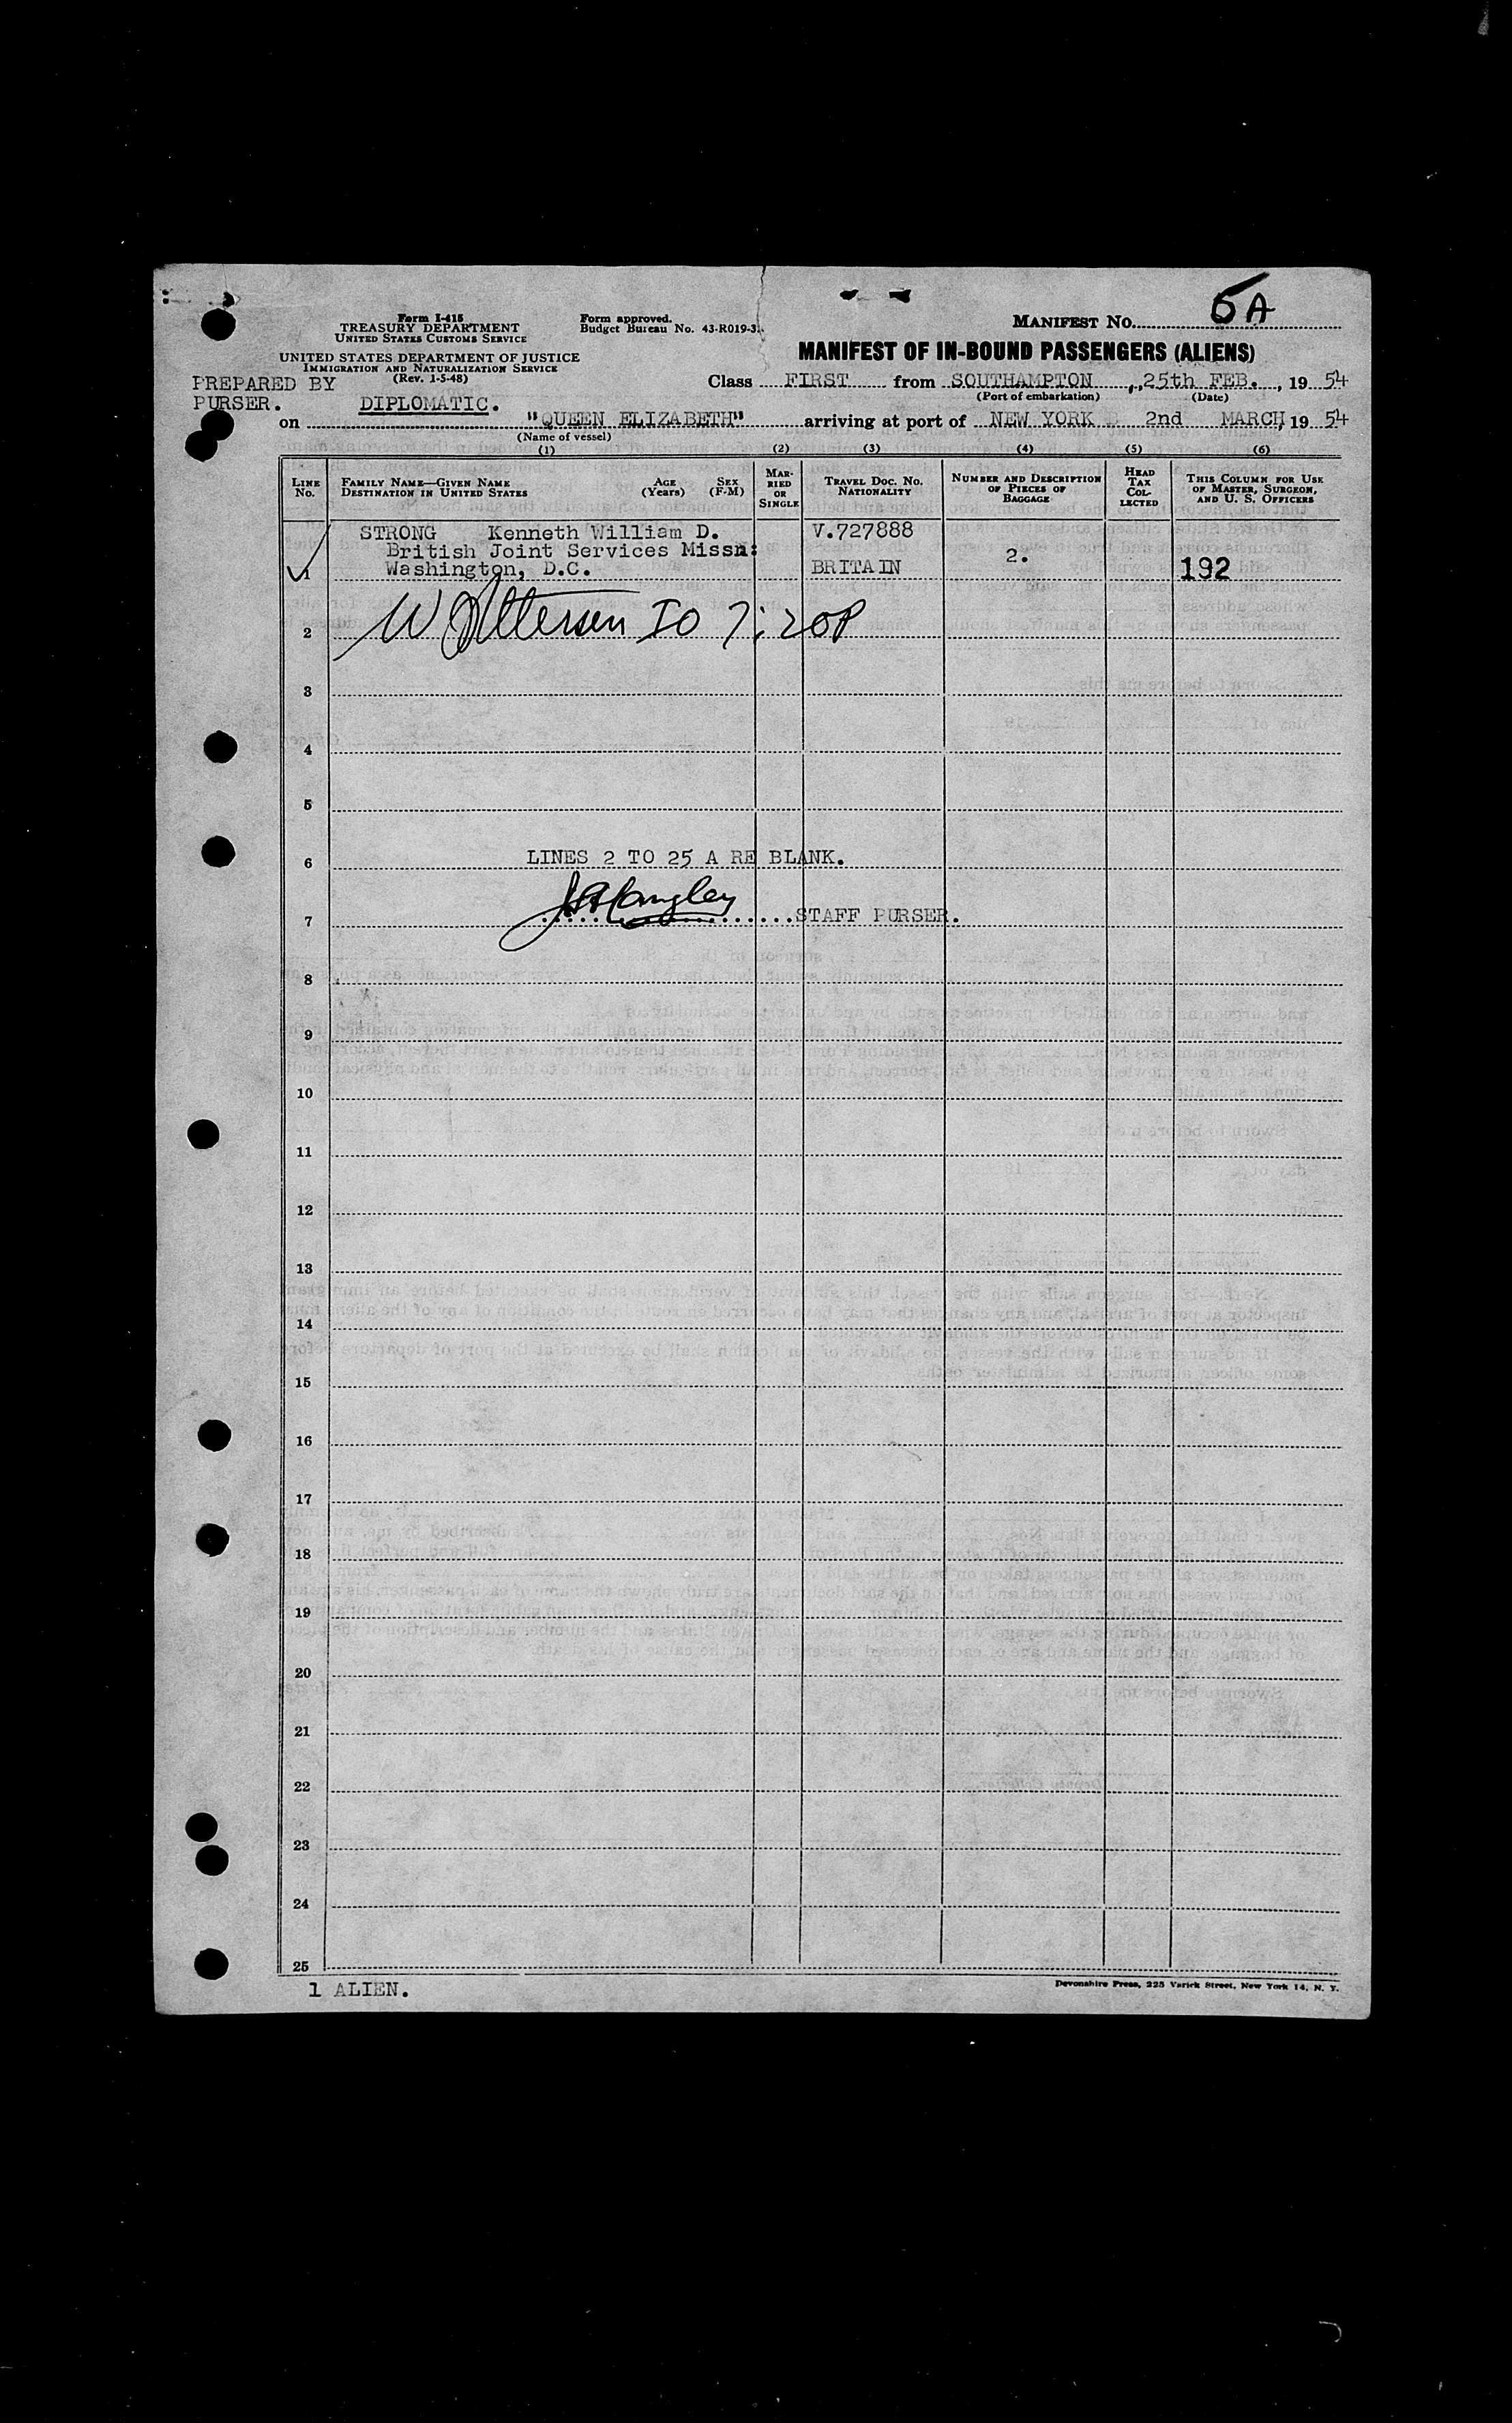 5A
Form I-415
TREASURY DEPARTMENT
UNITED STATES CUSTOMS SERVICE
Form approved.
Budget Bureau No. 43-R019-3.
MANIFEST No.
UNITED STATES DEPARTMENT OF JUSTICE
IMMIGRATION AND NATURALIZATION SERVICE
(Rev. 1-5-48)
MANIFEST OF IN-BOUND PASSENGERS (ALIENS)
PREPARED BY
PURSER.
DIPLOMATIC.
Class FIRST from SOUTHAMPTON, 25th FEB., 19 54
(Port of embarkation) (Date)
on "QUEEN ELIZABETH" arriving at port of NEW YORK 2nd MARCH, 19 54
(Name of vessel)
(1) (2) (3) (4) (5) (6)
LINE No.
FAMILY NAME—GIVEN NAME
DESTINATION IN UNITED STATES
AGE (Years)
SEX (F-M)
MARRIED OR SINGLE
TRAVEL DOC. NO.
NATIONALITY
NUMBER AND DESCRIPTION OF PIECES OF BAGGAGE
HEAD TAX COLLECTED
THIS COLUMN FOR USE OF MASTER, SURGEON, AND U. S. OFFICERS
STRONG Kenneth William D. V.727888
British Joint Services Missn: 2.
1 Washington, D.C. BRITAIN 192
2 IO 7:20P
3
4
5
6 LINES 2 TO 25 A RE BLANK.
7 STAFF PURSER.
8
9
10
11
12
13
14
15
16
17
18
19
20
21
22
23
24
25
1 ALIEN.
Devonshire Press, 225 Varick Street, New York 14, N. Y.